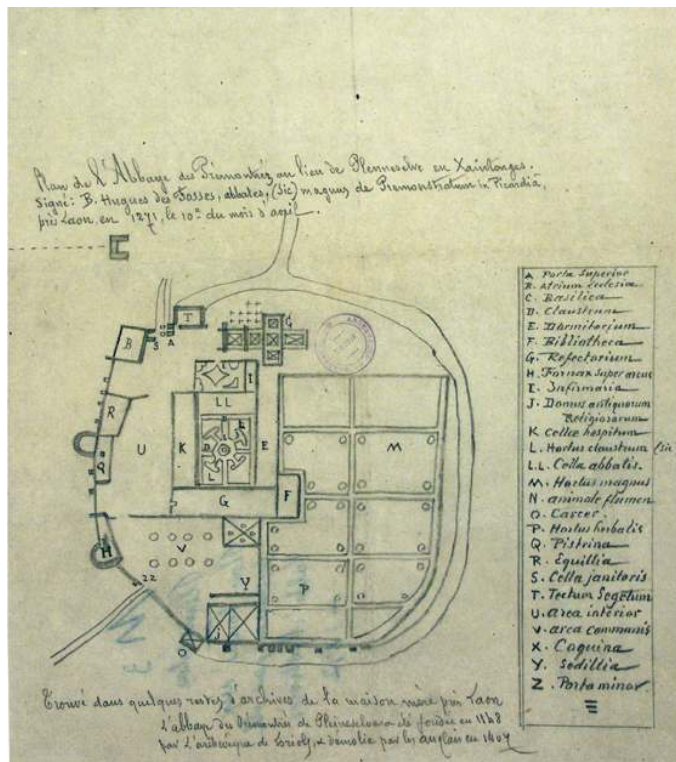 Plan de l'Abbaye des Prémontrez au lieu de Plenneselve en Xaintonges.
Signé: B. Hugues des Fosses, abbates, (sic) magnus de Premonstratum in Picardia,
près Laon, en 1271, le 10e du mois d'avril.
A Porta Superior
B. Atrium Ecclesiæ
C. Basilica
D. Claustrum
E. Dormitorium
F. Bibliotheca
G. Refectorium
H. Fornax super arcus
I. Infirmaria
J. Domus antiquorum
Religiosorum
K Cellæ hospitum
L. Hortus claustrum (sic
L.L. Cella abbatis.
M. Hortus magnus
N. animale flumen
O. Carcer.
P. Hortus herbalis
Q. Pistrina
R. Equillia
S. Cella janitoris
T. Tectum Segetum
U. area interior
V. area communis
X. Coquina
Y. Sedillia
Z. Porta minor
T
S
A
B
G
I
R
LL
U
K
D
L
L
E
M
Q
P
G
F
H
V
ZZ
Y
P
J
O
Trouvé dans quelques restes d'archives de la maison mère près Laon
L'abbaye des Prémontrés de a été fondée en 1148
par l'archevêque de & démolie par les anglais en 1407